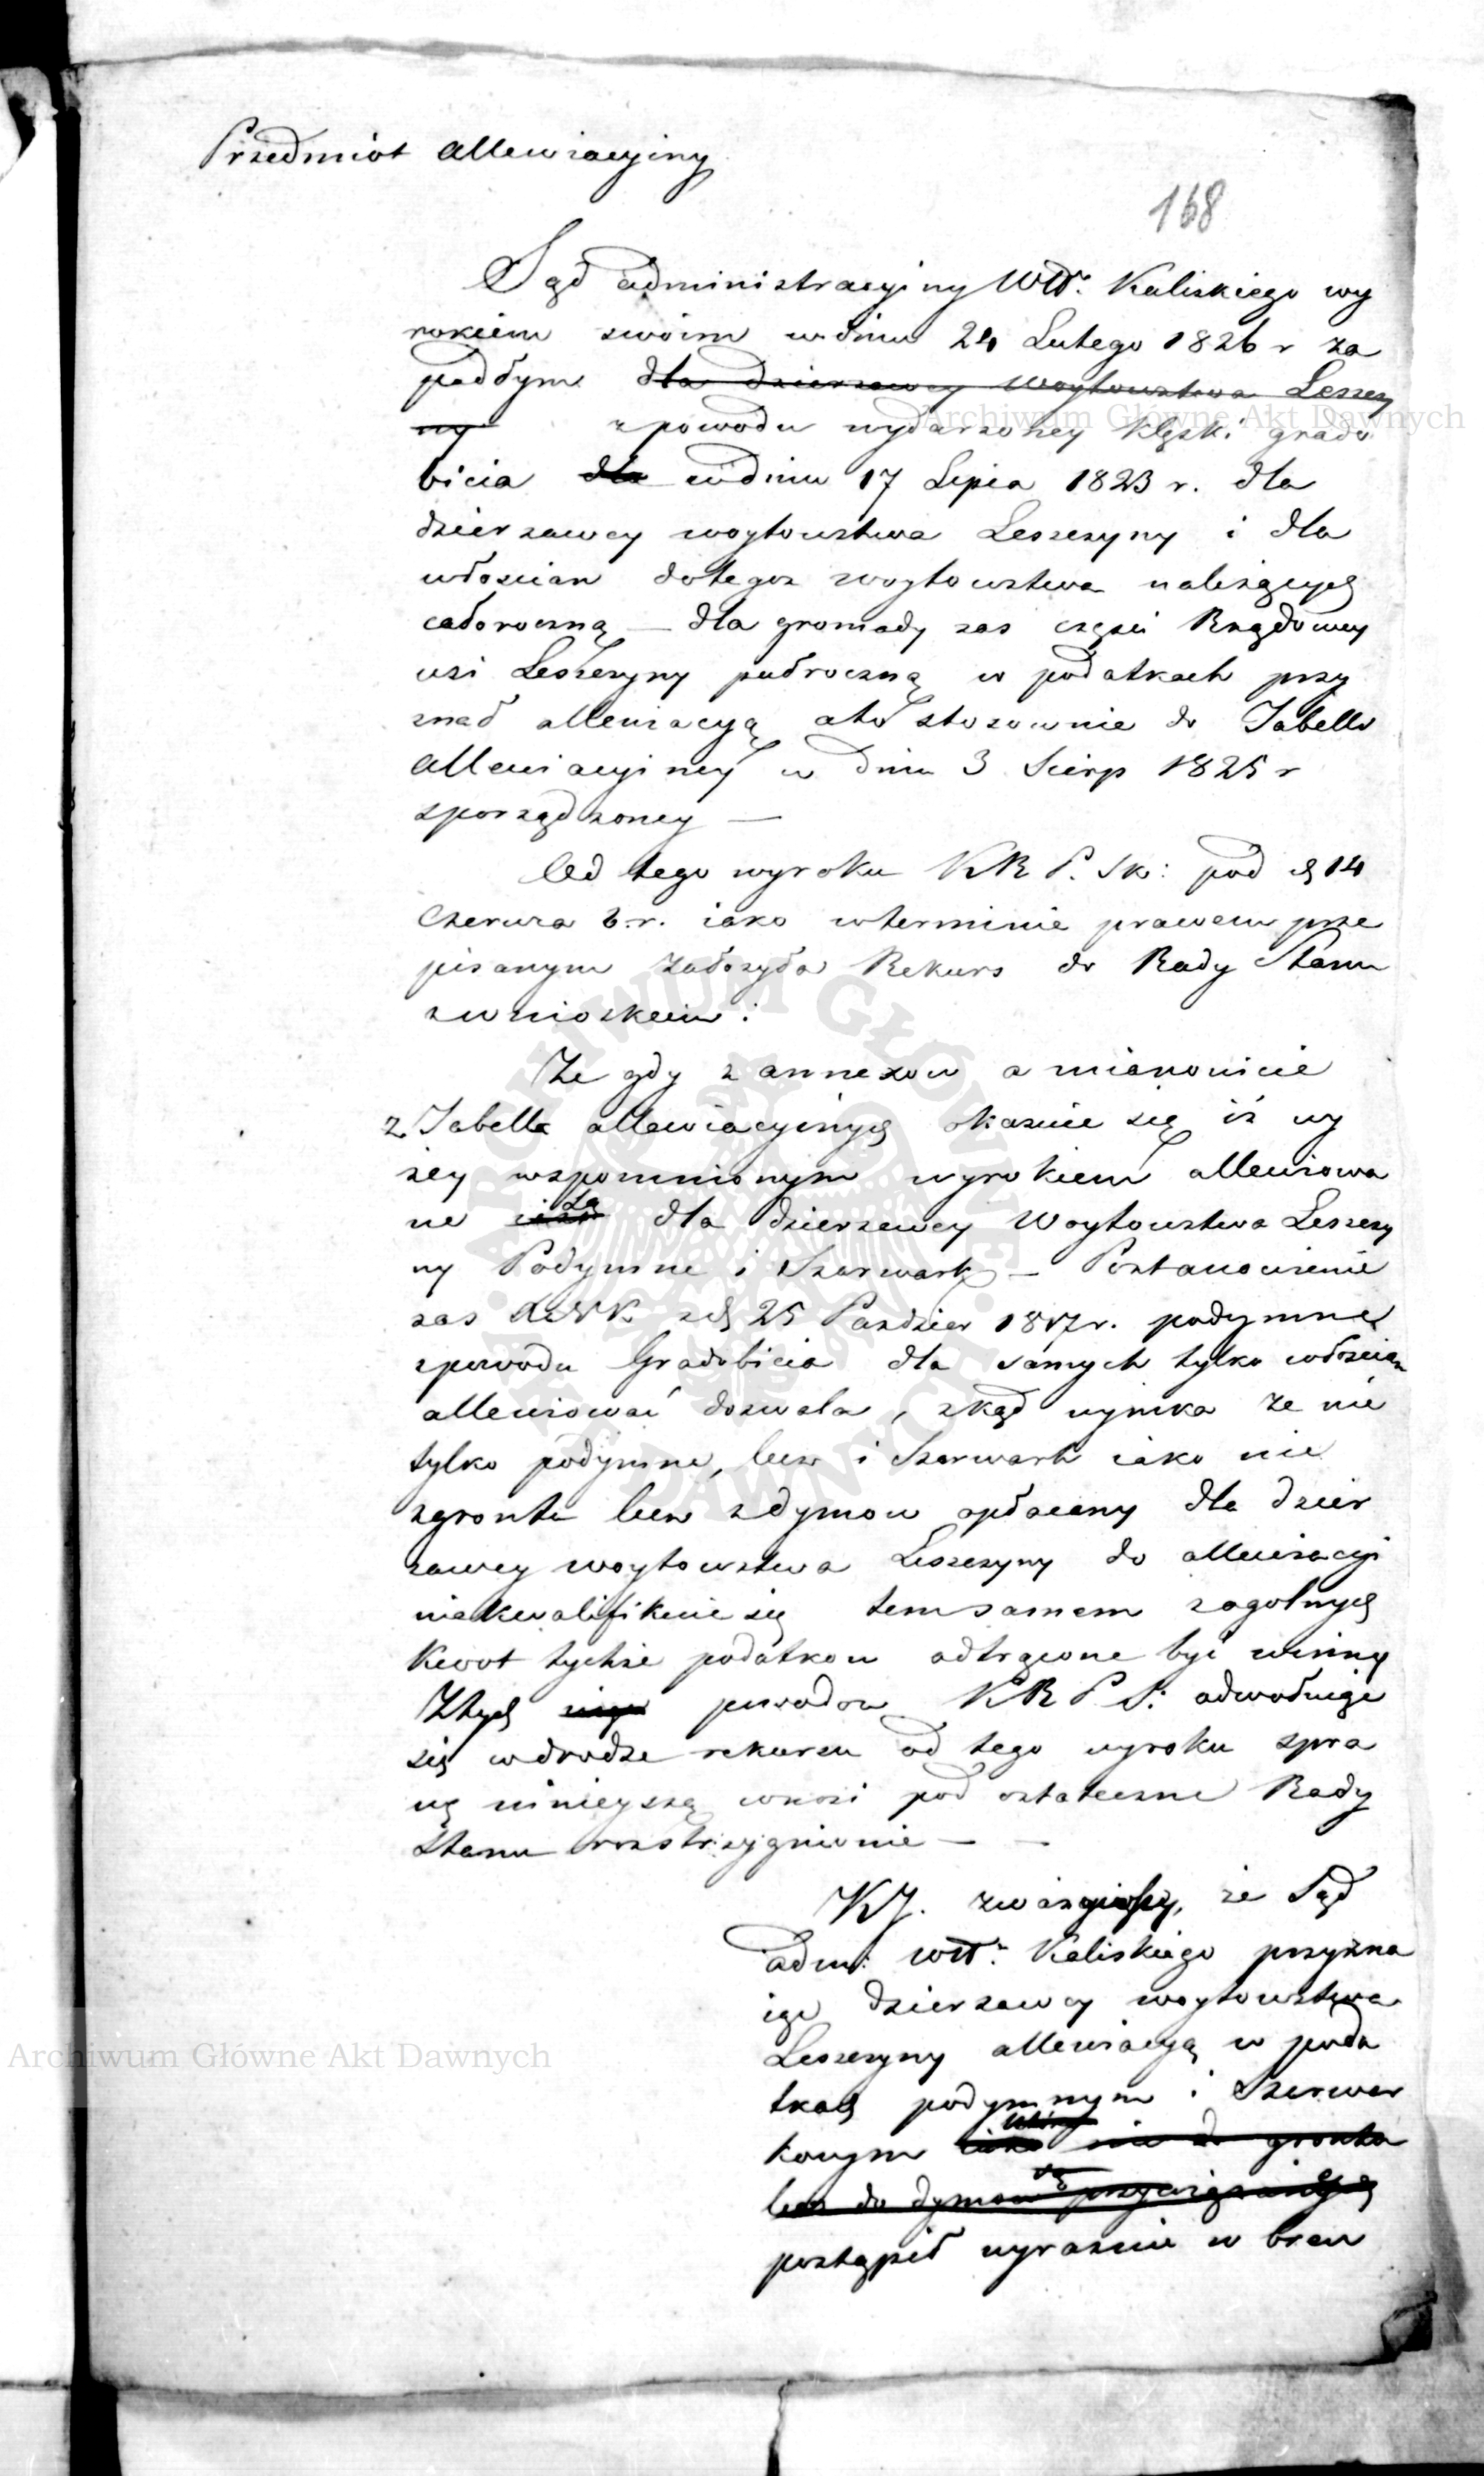 Przedmiot allewiacyiny
168
Sąd administracyiny Wdt. Kaliskiego wy
rokiem swoim wdniu 24 Lutego 1826 r za
padłym dla dzierzawcy woytowstwa Leszczy
ny zpowodu wydarzoney klęski grado
bicia dla wdniu 17 Lipca 1823 r. dla
dzierzawcy woytowstwa Leszczyny i dla
włoscian dotegoz woytowstwa należących
całoroczną — dla gromady zas części Rządowey
wsi Leszczyny pułroczną w podatkach przy
znał allewiacyą ato stosownie do Tabelli
allewiacyiney w dniu 3 Sierp 1825 r
sporządzoney —
Od tego wyroku KRP. Sk: pod d 14
Czerwca b.r. iako wterminie prawem prze
pisanym założyła Rekurs do Rady Stanu
zwnioskiem:
Ze gdy z annexow a mianowicie
z Tabelle allewiacyinych okazuie się iż wy
zey wspomnionym wyrokiem allewiowa
ne są dla dzierzawcy Woytowstwa Leszczy
ny Podymne i Szarwark — Postanowienie
zas zd 25 Pazdzier 1817 r. podymne
zpowodu Gradobicia dla samych tylko włoscian
allewiować dozwala, zkąd wynika ze nie
tylko podymne, lecz i Szarwark iako nie
zgrontu lecz zdymow opłacany dla dzier
zawcy woytowstwa Leszczyny do allewiacyi
niekwalifikuie się temsamem zogolnych
kwot tychże podatkow odtrącone być winny
Ztych powodow KRPS: odwołuiąc
się wdrodze rekursu od tego wyroku spra
wę ninieyszą wnosi pod ostateczne Rady
Stanu rozstrzygnienie — —
KJ. zważywszy, ze Sąd
adm: Wdt. Kaliskiego przyzna
iąc dzierzawcy woytowstwa
Leszczyny allewiacyą w poda
tkach podymnym i Szarwar
kowym iako nie do grontu
lecz do dymow przywiązanych
postąpił wyraznie w brew
Archiwum Główne Akt Dawnych
Archiwum Główne Akt Dawnych
ARCHIWUM GŁÓWNE AKT DAWNYCH